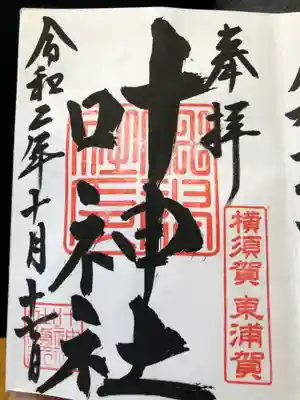 奉拝
横須賀 東浦賀
叶神社
令和二年十月十七日